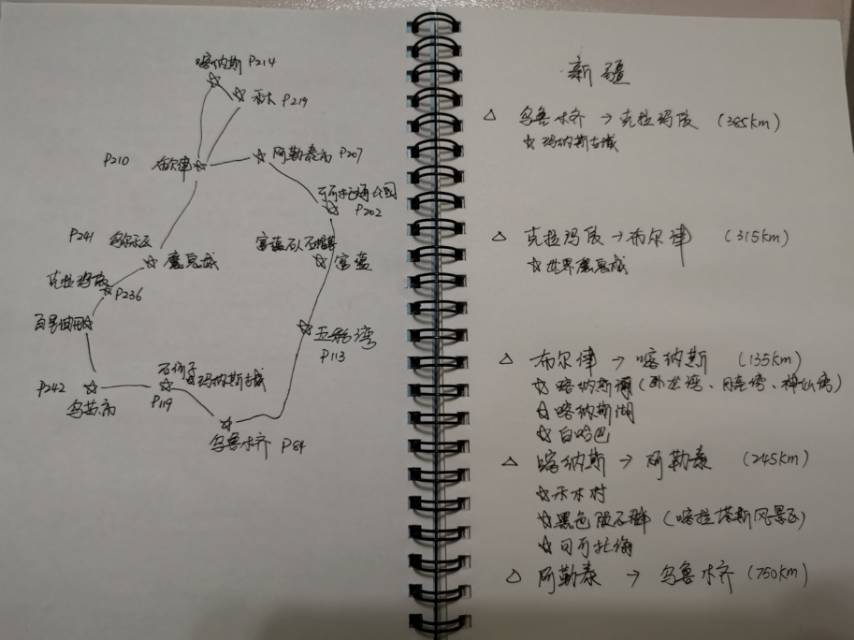 喀纳斯 P214
禾木 P219
P210
布尔津
阿勒泰市 P207
可可托海
P202
P241
魔鬼城
克拉玛依
P236
富蕴
五彩湾
P113
P242
乌苏市
石河子
玛纳斯古城
P119
乌鲁木齐 P84
新疆
△ 乌鲁木齐 → 克拉玛依 (385km)
☆ 玛纳斯古城
△ 克拉玛依 → 布尔津 (315km)
☆ 世界魔鬼城
△ 布尔津 → 喀纳斯 (135km)
☆ 喀纳斯湖 (卧龙湾、月亮湾、神仙湾)
喀纳斯湖
☆ 白哈巴
△ 喀纳斯 → 阿勒泰 (245km)
☆ 禾木村
☆ 黑色陨石群 (喀拉塔斯风景区)
☆ 可可托海
△ 阿勒泰 → 乌鲁木齐 (750km)